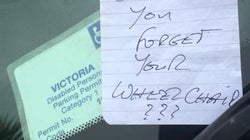 VICTORIA
Disabled Person
Parking Permit
Category 1
Permit No.
YOU
FORGET
YOUR
WHEELCHAIR
???